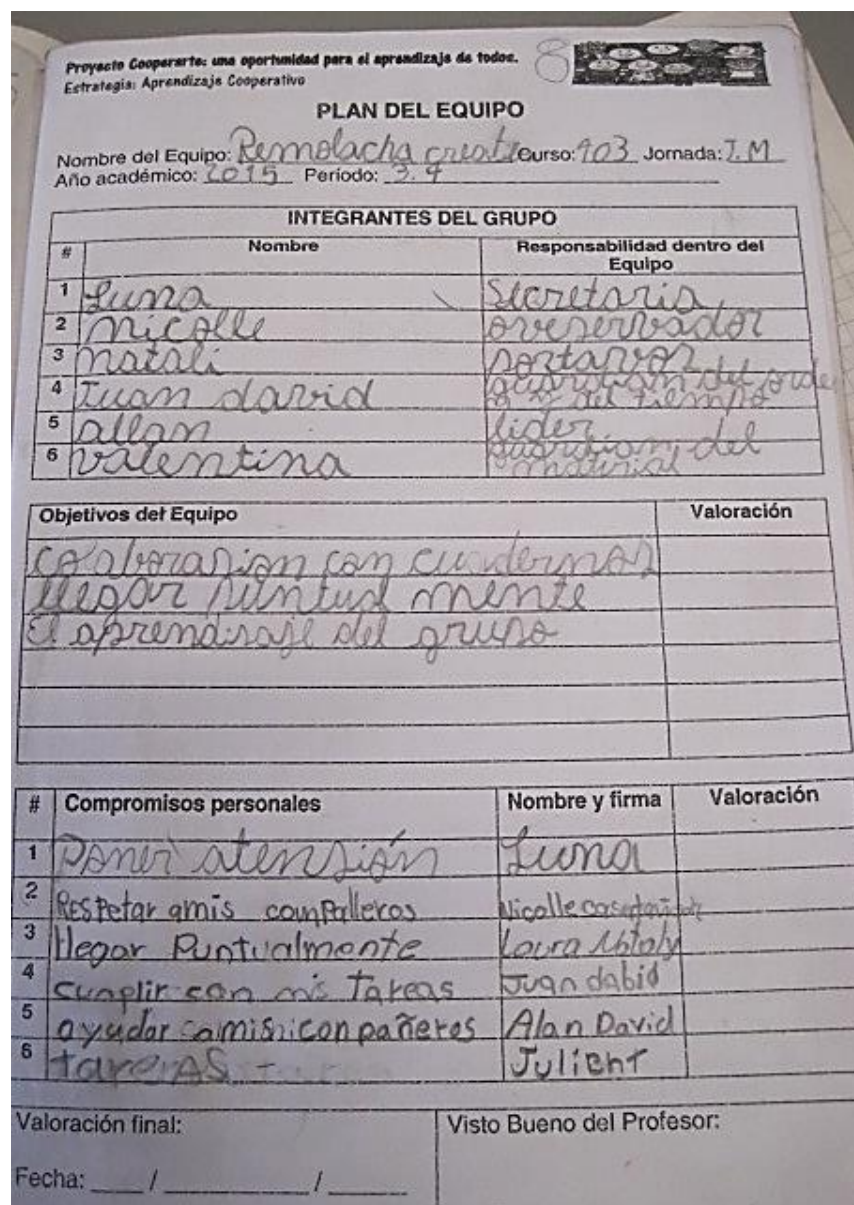 Proyecto Cooperarte: una oportunidad para el aprendizaje de todos.
Estrategia: Aprendizaje Cooperativo
8
PLAN DEL EQUIPO
Nombre del Equipo: Remolacha Curso: 903 Jornada: J.M
Año académico: 2015 Periodo: 3.4
INTEGRANTES DEL GRUPO
# Nombre Responsabilidad dentro del Equipo
1 Luna Secretaria
2 nicolle
3 natali
4 Juan david guardian del orden
del tiempo
5 allan lider
6 valentina guardian del
material
Objetivos del Equipo Valoración
colaborasion con cuadernos
llegar puntual mente
El aprendisaje del grupo
# Compromisos personales Nombre y firma Valoración
1 Poner atensión Luna
2 RESPetar amis compalleros Nicolle
3 llegar Puntualmente Laura Nataly
4 cumplir con mis Tareas Juan dabid
5 ayudar a mis conpañeros Alan David
6 tareas
Valoración final: Visto Bueno del Profesor:
Fecha: ____/____________/______